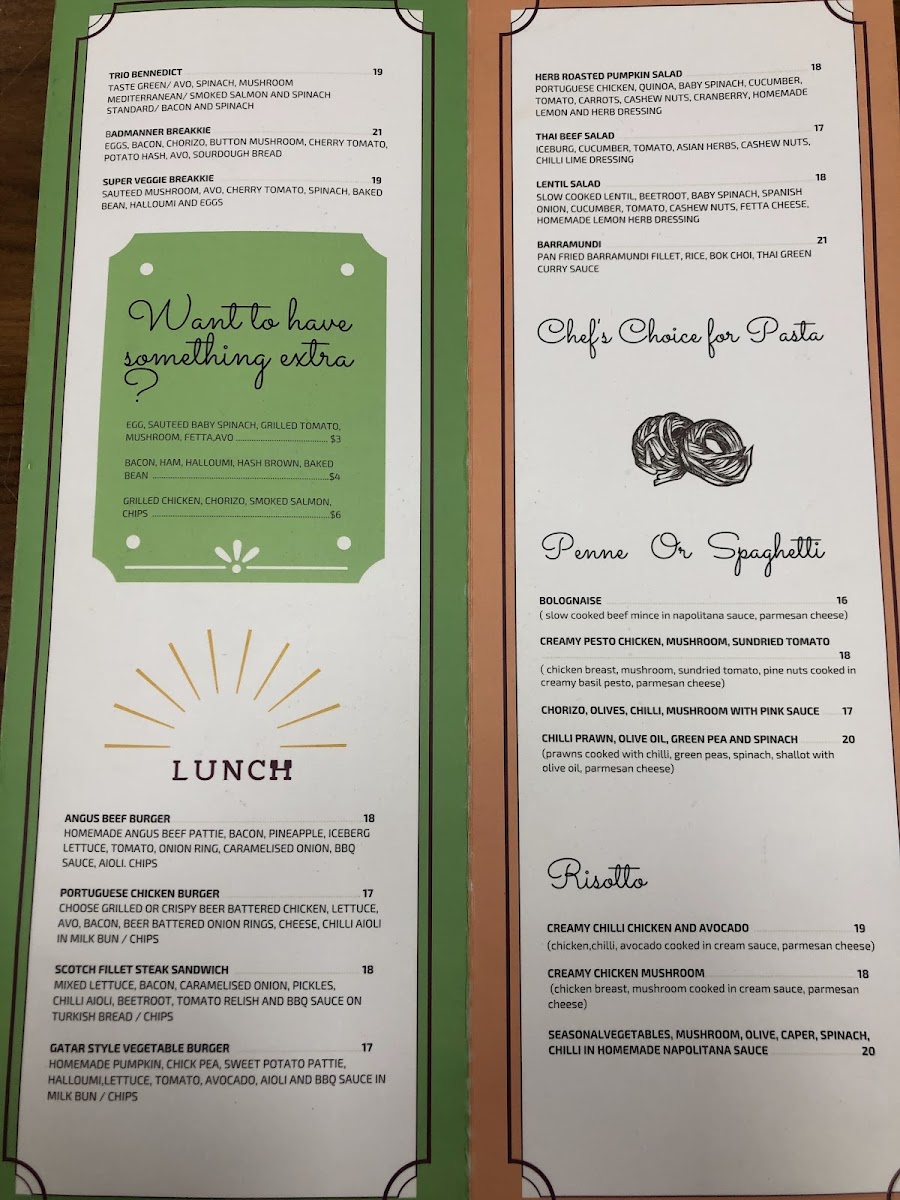 TRIO BENNEDICT 19
TASTE GREEN/ AVO, SPINACH, MUSHROOM
MEDITERRANEAN/ SMOKED SALMON AND SPINACH
STANDARD/ BACON AND SPINACH
BADMANNER BREAKKIE 21
EGGS, BACON, CHORIZO, BUTTON MUSHROOM, CHERRY TOMATO,
POTATO HASH, AVO, SOURDOUGH BREAD
SUPER VEGGIE BREAKKIE 19
SAUTEED MUSHROOM, AVO, CHERRY TOMATO, SPINACH, BAKED
BEAN, HALLOUMI AND EGGS
Want to have
something extra
?
EGG, SAUTEED BABY SPINACH, GRILLED TOMATO,
MUSHROOM, FETTA,AVO ................................ $3
BACON, HAM, HALLOUMI, HASH BROWN, BAKED
BEAN ..............................................................$4
GRILLED CHICKEN, CHORIZO, SMOKED SALMON,
CHIPS ..............................................................$6
LUNCH
ANGUS BEEF BURGER 18
HOMEMADE ANGUS BEEF PATTIE, BACON, PINEAPPLE, ICEBERG
LETTUCE, TOMATO, ONION RING, CARAMELISED ONION, BBQ
SAUCE, AIOLI. CHIPS
PORTUGUESE CHICKEN BURGER 17
CHOOSE GRILLED OR CRISPY BEER BATTERED CHICKEN, LETTUCE,
AVO, BACON, BEER BATTERED ONION RINGS, CHEESE, CHILLI AIOLI
IN MILK BUN / CHIPS
SCOTCH FILLET STEAK SANDWICH 18
MIXED LETTUCE, BACON, CARAMELISED ONION, PICKLES,
CHILLI AIOLI, BEETROOT, TOMATO RELISH AND BBQ SAUCE ON
TURKISH BREAD / CHIPS
GATAR STYLE VEGETABLE BURGER 17
HOMEMADE PUMPKIN, CHICK PEA, SWEET POTATO PATTIE,
HALLOUMI,LETTUCE, TOMATO, AVOCADO, AIOLI AND BBQ SAUCE IN
MILK BUN / CHIPS
HERB ROASTED PUMPKIN SALAD 18
PORTUGUESE CHICKEN, QUINOA, BABY SPINACH, CUCUMBER,
TOMATO, CARROTS, CASHEW NUTS, CRANBERRY, HOMEMADE
LEMON AND HERB DRESSING
THAI BEEF SALAD 17
ICEBURG, CUCUMBER, TOMATO, ASIAN HERBS, CASHEW NUTS,
CHILLI LIME DRESSING
LENTIL SALAD 18
SLOW COOKED LENTIL, BEETROOT, BABY SPINACH, SPANISH
ONION, CUCUMBER, TOMATO, CASHEW NUTS, FETTA CHEESE,
HOMEMADE LEMON HERB DRESSING
BARRAMUNDI 21
PAN FRIED BARRAMUNDI FILLET, RICE, BOK CHOI, THAI GREEN
CURRY SAUCE
Chef's Choice for Pasta
Penne Or Spaghetti
BOLOGNAISE 16
( slow cooked beef mince in napolitana sauce, parmesan cheese)
CREAMY PESTO CHICKEN, MUSHROOM, SUNDRIED TOMATO
18
( chicken breast, mushroom, sundried tomato, pine nuts cooked in
creamy basil pesto, parmesan cheese)
CHORIZO, OLIVES, CHILLI, MUSHROOM WITH PINK SAUCE 17
CHILLI PRAWN, OLIVE OIL, GREEN PEA AND SPINACH 20
(prawns cooked with chilli, green peas, spinach, shallot with
olive oil, parmesan cheese)
Risotto
CREAMY CHILLI CHICKEN AND AVOCADO 19
(chicken,chilli, avocado cooked in cream sauce, parmesan cheese)
CREAMY CHICKEN MUSHROOM 18
(chicken breast, mushroom cooked in cream sauce, parmesan
cheese)
SEASONALVEGETABLES, MUSHROOM, OLIVE, CAPER, SPINACH,
CHILLI IN HOMEMADE NAPOLITANA SAUCE 20